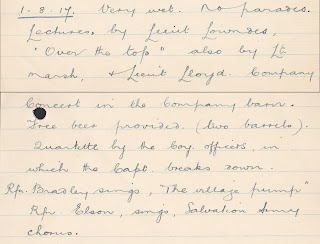 1-8-17. Very wet. No parades.
Lectures by Lieut Lowndes,
"Over the top" also by Lt
Marsh, & Lieut Lloyd. Company
Concert in the Company barn.
Free beer provided. (two barrels).
Quartette by the Coy. officers, in
which the Capt. breaks down.
Rfn. Bradley sings, "The village pump"
Rfn. Elson, sings, Salvation Army
chorus.